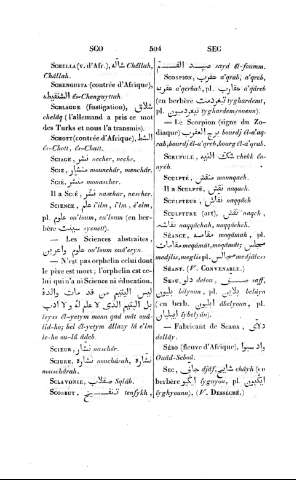 SCO 504 SEC
SCHELLA (v. d'Afr.), شالّه Châllah,
Châllah.
SCHENGUITA (contrée d'Afrique),
الشنقيطه És-Chenguytah
SCHLAGUE (fustigation), شلاق
chelâq (l'allemand a pris ce mot
des Turks et nous l'a transmis).
SCHOTT (contrée d'Afrique), الشط
és-Chott, Ès-Chatt.
SCIAGE, نشر nécher, neche.
SCIE, منشار mouncհâr, menchâr.
SCIÉ, منشر mounacher.
Il a SCIÉ, نشر nachar, nacher.
SCIENCE, علم i'lm, i'lm, a'lem,
pl. علوم ou'loum, eu'loum (en ber-
bère سينت syenett).
— Les Sciences abstraites,
علوم وعرين ou'loum oua'eryn.
— N'est pas orphelin celui dont
le père est mort; l'orphelin est ce-
lui qui n'a ni Science ni éducation.
ليس اليتيم من قد مات والدة
بل اليتيم الذي لا علم له ولا ادب
leys él-yetym man qad mât ouâ-
lid-ho; bel él-yetym éllazy lâ e'lm
le-ho ou-lâ âdeb.
SCIEUR, نشار nacchâr.
SCIURE, نشاره nouchârah, منشاره
mouchârah.
SCLAVONIE, صقلاب Sqlâb.
SCORBUT, تنفيخ tenfykh,
صيد الفم sayd êl-foumm.
SCORPION, عقرب a'qrab, a'qreb,
a'qerbah, pl. عقارب a'qâreb
(en berbère تيغردمت tyghardemt,
pl. تيغردموين tygherdemouyn).
— Le Scorpion (signe du Zo-
diaque) برج العقرب bourdj él-a'qe-
rab, bourdj él-a'qreb, bourg él-a'qrab.
SCRUPULE, شك النيه chekk én-
nyéh.
SCULPTÉ, منقش mounaqqech.
Il a SCULPTÉ, نقش naqqach.
SCULPTEUR, نقاش naqqâch.
SCULPTURE (art), نقش naqch,
نقاشه naqqâchah, naqqâcheh.
SÉANCE, مقامة maqâmah, pl.
مقامات maqâmât; مجلس
medjlis, meglis, pl. مجالس medjâles.
SÉANT. (V. CONVENABLE.)
SEAU, دلو delou, صف saff,
بليون belyoun, pl. بلاين belâyn
(en berb. ابليون âbelyoun, pl.
ابليان âbelyân).
— Fabricant de Seaux, دلاي
dallây.
SÉBO (fleuve d'Afrique), واد سبوا
Ouâd-Seboû.
SEC, جاف djâf, شايح châyh (en
berbère ايكوير âygouyer, pl. ايكيون
âyghyouen). (V. DESSÉCHÉ.)